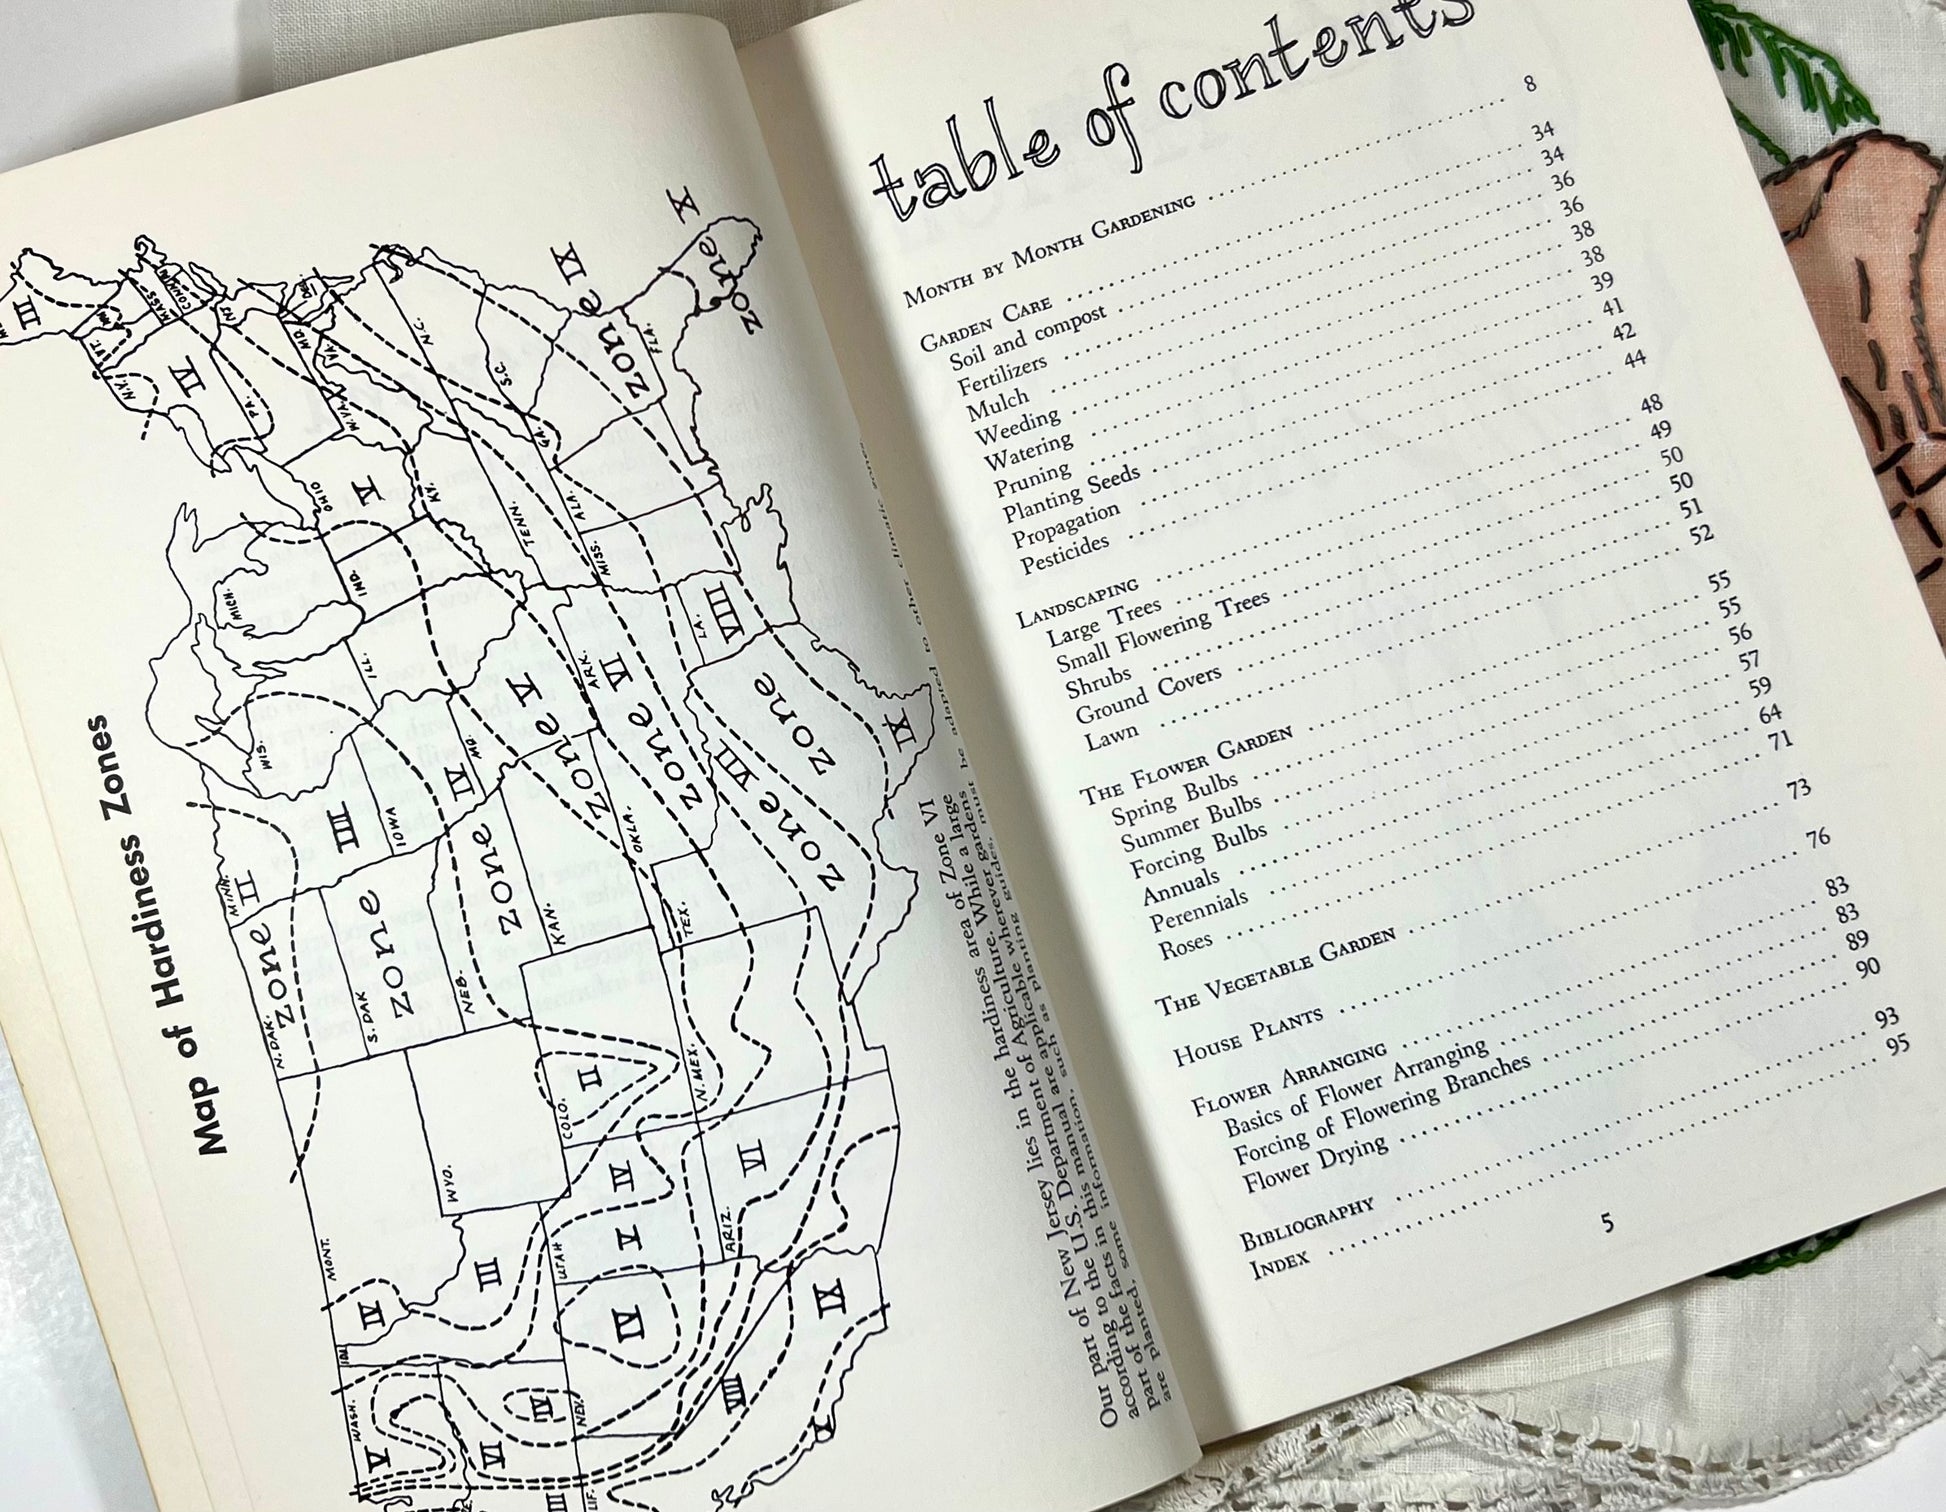 Map of Hardiness Zones
WASH.
V
IDA.
IV
MONT.
N. DAK.
zone II
MINN.
WIS.
MICH.
N.Y.
VT.
III
MASS.
CONN.
N.J.
IV
PA.
OHIO
V
IND.
ILL.
IOWA
III
S. DAK
zone
WYO.
III
VI
IV
NEV.
UTAH
IV
V
IV
COLO.
II
NEB.
zone IV
KAN.
MO.
zone V
KY.
W. VA.
VA.
MD.
DEL.
N.C.
TENN.
ARK.
zone VI
OKLA.
TEX.
N. MEX.
ARIZ.
VI
VIII
XI
X
zone VII
zone VIII
LA.
MISS.
ALA.
GA.
S.C.
IX
FLA.
zone IX
zone X
Our part of New Jersey lies in the hardiness area of Zone VI
according to the U.S. Department of Agriculture. While a large
part of the facts in this manual are applicable wherever gardens
are planted, some information, such as planting guides, must be adapted to other climatic zones.
table of contents
Month by Month Gardening 8
Garden Care 34
Soil and compost 34
Fertilizers 36
Mulch 36
Weeding 38
Watering 38
Pruning 39
Planting Seeds 41
Propagation 42
Pesticides 44
Landscaping 48
Large Trees 49
Small Flowering Trees 50
Shrubs 50
Ground Covers 51
Lawn 52
The Flower Garden 55
Spring Bulbs 55
Summer Bulbs 56
Forcing Bulbs 57
Annuals 59
Perennials 64
Roses 71
The Vegetable Garden 73
House Plants 76
Flower Arranging 83
Basics of Flower Arranging 83
Forcing of Flowering Branches 89
Flower Drying 90
Bibliography 93
Index 95
5